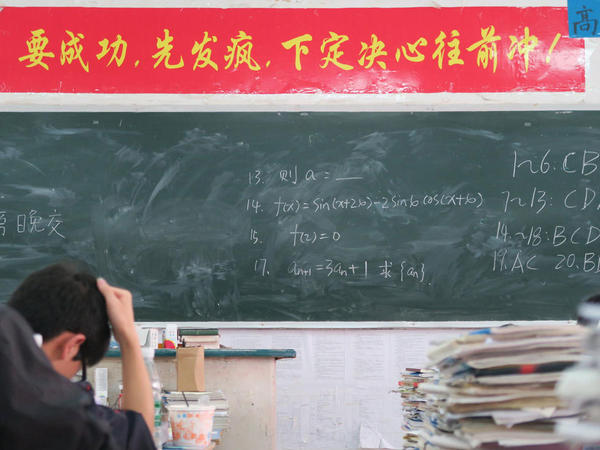 高
要成功，先发疯，下定决心往前冲！
晚交
13. 则a=___
14. f(x)=sin(x+2φ)-2sinφcos(x+φ)
15. f(2)=0
17. aₙ₊₁=3aₙ+1 求{aₙ}.
1~6. CB
7~13: CD
14~18: BCD
19. AC 20. B